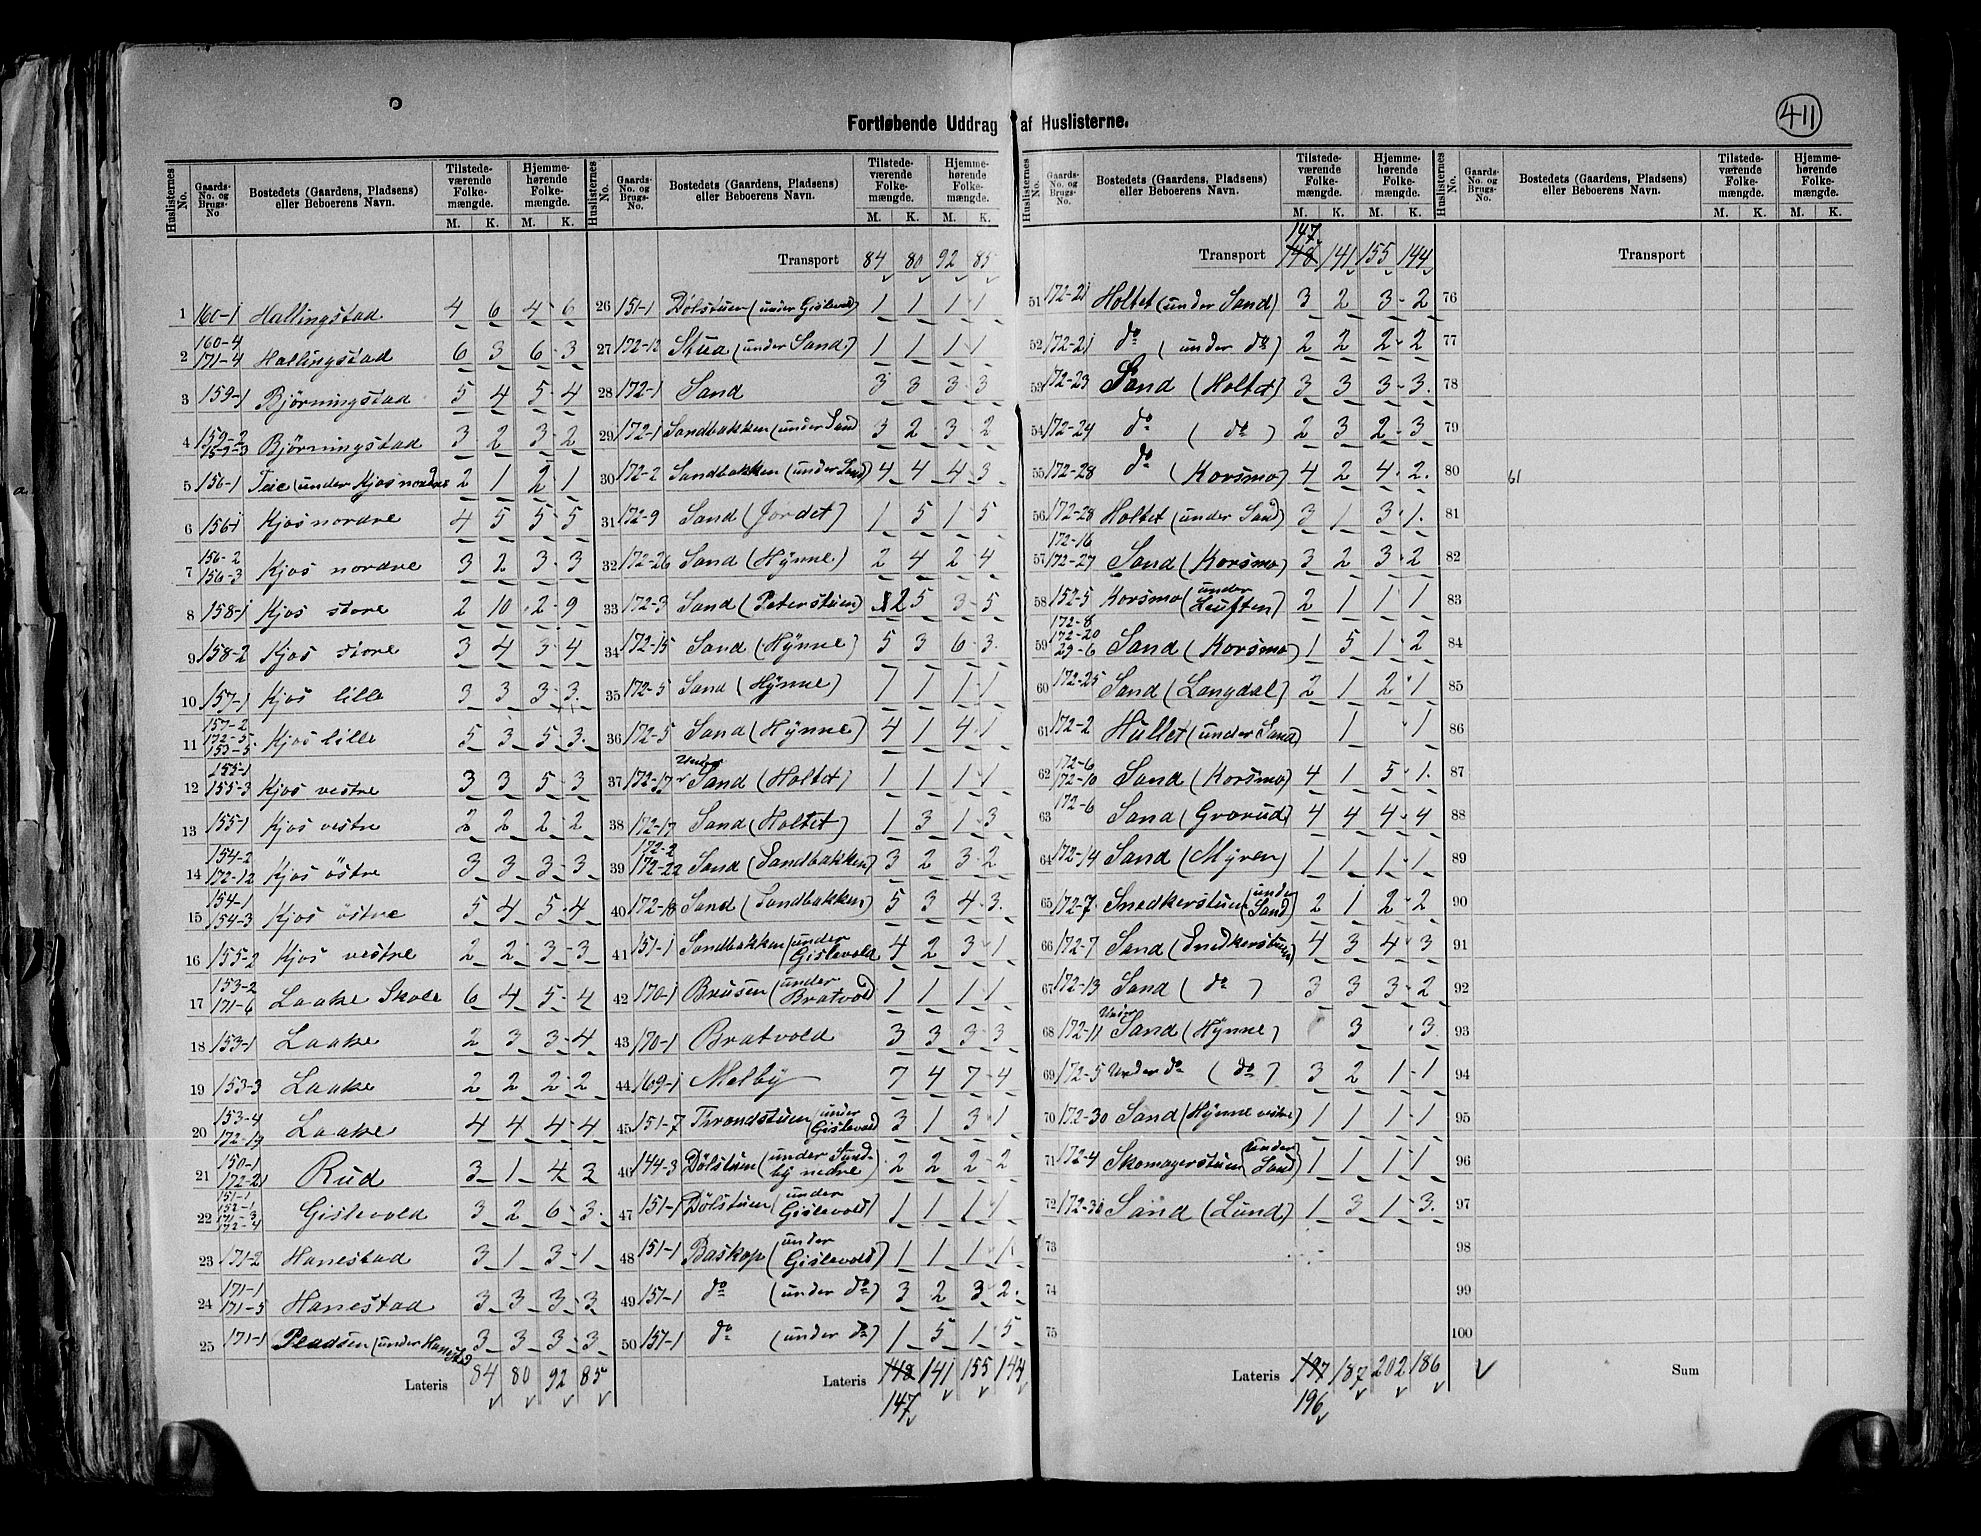 411
Fortløbende Uddrag af Huslisterne.
Huslisternes No. | Gaards-No. og Brugs-No | Bostedets (Gaardens, Pladsens) eller Beboerens Navn. | Tilstedeværende Folkemængde. M. K. | Hjemmehørende Folkemængde. M. K.
1 160-1 Hallingstad 4 6 4 6
2 160-4 171-4 Hallingstad 6 3 6 3
3 159-1 Bjørningstad 5 4 5 4
4 159-2 Bjørningstad 3 2 3 2
5 156-1 Teie (under Kjos nordre 2 1 2 1
6 156-1 Kjos nordre 4 5 5 5
7 156-2 156-3 Kjos nordre 3 2 3 3
8 158-1 Kjos store 2 10 2 9
9 158-2 Kjos store 3 4 3 4
10 157-1 Kjos lille 3 3 3 3
11 157-2 172-5 153-5 Kjos lille 5 3 5 3
12 155-1 155-3 Kjos vestre 3 3 5 3
13 155-1 Kjos vestre 2 2 2 2
14 154-2 172-12 Kjos östre 3 3 3 3
15 154-1 154-3 Kjos östre 5 4 5 4
16 155-2 Kjos vestre 2 2 3 3
17 153-2 171-6 Laake Skole 6 4 5 4
18 153-1 Laake 2 3 3 4
19 153-3 Laake 2 2 2 2
20 153-4 172-19 Laake 4 4 4 4
21 150-1 172-21 Rud 3 1 4 2
22 151-1 152-1 171-3 172-4 Gislevold 3 2 6 3
23 171-2 Hanestad 3 1 3 1
24 171-1 171-5 Hanestad 3 3 3 3
25 171-1 Pladsen (under Hanestad 3 3 3 3
Lateris 84 80 92 85
Huslisternes No. | Gaards-No. og Brugs-No. | Bostedets (Gaardens, Pladsens) eller Beboerens Navn. | Tilstedeværende Folkemængde. M. K. | Hjemmehørende Folkemængde. M. K.
Transport 84 80 92 85
26 151-1 Dölstuen (under Gislevold) 1 1 1 1
27 172-12 Stua (under Sand) 1 1 1 1
28 172-1 Sand 3 3 3 3
29 172-1 Sandbakken (under Sand 3 2 3 2
30 172-2 Sandbakken (under Sand) 4 4 4 3
31 172-9 Sand (Jordet) 1 5 1 5
32 172-26 Sand (Hÿnne) 2 4 2 4
33 172-3 Sand (Peterstuen) 2 5 3 5
34 172-15 Sand (Hÿnne) 5 3 6 3
35 172-5 Sand (Hÿnne) 1 1 1 1
36 172-5 Sand (Hÿnne) 4 1 4 1
37 172-17 Under Sand (Holtet) 1 1 1 1
38 172-17 Sand (Holtet) 1 3 1 3
39 172-2 172-22 Sand (Sandbakken) 3 2 3 2
40 172-18 Sand (Sandbakken) 5 3 4 3
41 151-1 Sandbakken (under Gislevold 4 2 3 1
42 170-1 Brusen (under Bratvold 1 1 1 1
43 170-1 Bratvold 3 3 3 3
44 169-1 Melby 7 4 7 4
45 151-7 Throndstuen (under Gislevold) 3 1 3 1
46 144-3 Dölstuen (under Sundby nedre) 2 2 2 2
47 151-1 Dölstuen (under Gislevold) 1 1 1 1
48 151-1 Baskop (under Gislevold) 1 1 1 1
49 151-1 do (under do) 3 2 3 2
50 151-1 do (under do) 1 5 1 5
Lateris 148 141 155 144
147
Huslisternes No. | Gaards-No. og Brugs-No. | Bostedets (Gaardens, Pladsens) eller Beboerens Navn. | Tilstedeværende Folkemængde. M. K. | Hjemmehørende Folkemængde. M. K.
147
Transport 148 141 155 144
51 172-21 Holtet (under Sand) 3 2 3 2
52 172-21 do (under do) 2 2 2 2
53 172-23 Sand (Holtet) 3 3 3 3
54 172-24 do (do) 2 3 2 3
55 172-28 do (Korsmo) 4 2 4 2
56 172-28 Holtet (under Sand) 3 1 3 1
57 172-16 172-27 Sand (Korsmo) 3 2 3 2
58 152-5 Korsmo (under Leuften) 2 1 1 1
59 172-8 172-20 29-6 Sand (Korsmo) 1 5 1 2
60 172-25 Sand (Langdal) 2 1 2 1
61 172-2 Hullet (under Sand) 1 1
62 172-6 172-10 Sand (Korsmo) 4 1 5 1
63 172-6 Sand (Grorud) 4 4 4 4
64 172-14 Sand (Mÿren) 1 1 1 1
65 172-7 Snedkerstuen (under Sand) 2 1 2 2
66 172-7 Sand (Snedkerstuen) 4 3 4 3
67 172-13 Sand (do) 3 3 3 2
68 172-11 Under Sand (Hÿnne) 3 3
69 172-5 Under do (do) 3 2 1 1
70 172-30 Sand (Hÿnne vestre) 1 1 1 1
71 172-4 Skomagerstuen (under Sand) 1 1 1 1
72 172-31 Sand (Lund) 1 3 1 3
73
74
75
Lateris 197 187 202 186
196
Huslisternes No. | Gaards-No. og Brugs-No. | Bostedets (Gaardens, Pladsens) eller Beboerens Navn. | Tilstedeværende Folkemængde. M. K. | Hjemmehørende Folkemængde. M. K.
Transport
76
77
78
79
80 61
81
82
83
84
85
86
87
88
89
90
91
92
93
94
95
96
97
98
99
100
Sum